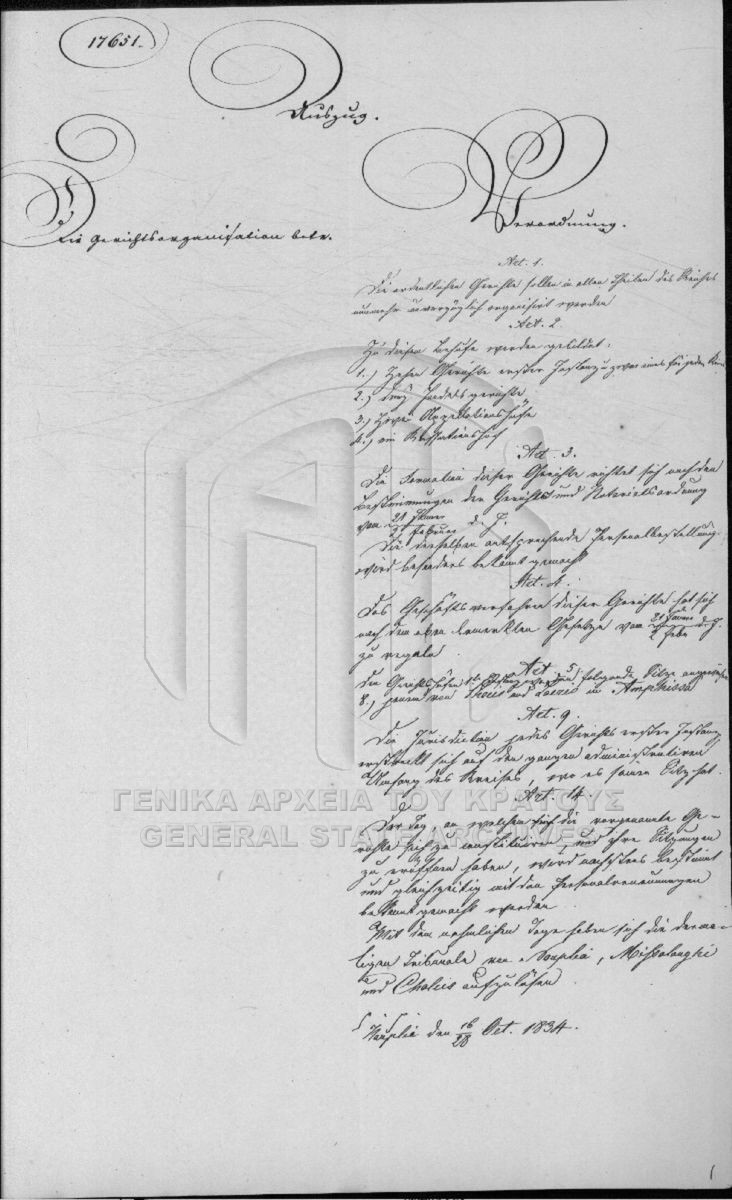 17651.
Auszug.
Die Gerichtsorganisation betr.
Verordnung.
Art. 1.
Die ordentlichen Gerichte sollen in allen Theilen des Reiches
nunmehr unverzüglich organisirt werden
Art. 2.
Zu diesem Behufe werden gebildet:
1.) Zehen Gerichte erster Instanz u. zwar eines für jeden
2.) drey Handelsgerichte
3.) Zwei Appellationshöfe
4.) ein Kassationshof
Art. 3.
Die Formation dieser Gerichte richtet sich nach den
Bestimmungen der Gerichts und Notariatsordnung
vom 21 Jänner / 2 Februar d. J.
Die denselben entsprechende Personalbestellung
wird besonders bekannt gemacht
Art. 4.
Das Geschäftsverfahren dieser Gerichte hat sich
nach dem oben bemerkten Gesetze vom 21 Jänner / 2 Febr d. J.
zu regeln.
Art 5.
Den Gerichtshöfen 1ter Instanz werden folgende Sitze angewiesen
8.) jenem von Phocis und Locris in Amphissa
Art. 9.
Die Jurisdiction jedes Gerichts erster Instanz
erstreckt sich auf den ganzen administrativen
Umfang des Kreises, wo es seinen Sitz hat.
Art. 14.
Der Tag, an welchem sich die vorgenannte Ge-
richte sich zu constituiren, und ihre Sitzungen
zu eröffnen haben, wird nächstens bestimmt
und gleichzeitig mit den Personalernennungen
bekannt gemacht werden.
Mit dem nehmlichen Tage haben sich die derma-
ligen Tribunale von Nauplia, Missolonghi
und Chalcis aufzulösen.
Nauplia den 16/28 Oct. 1834.
ΓΕΝΙΚΑ ΑΡΧΕΙΑ ΤΟΥ ΚΡΑΤΟΥΣ
GENERAL STATE ARCHIVES
1